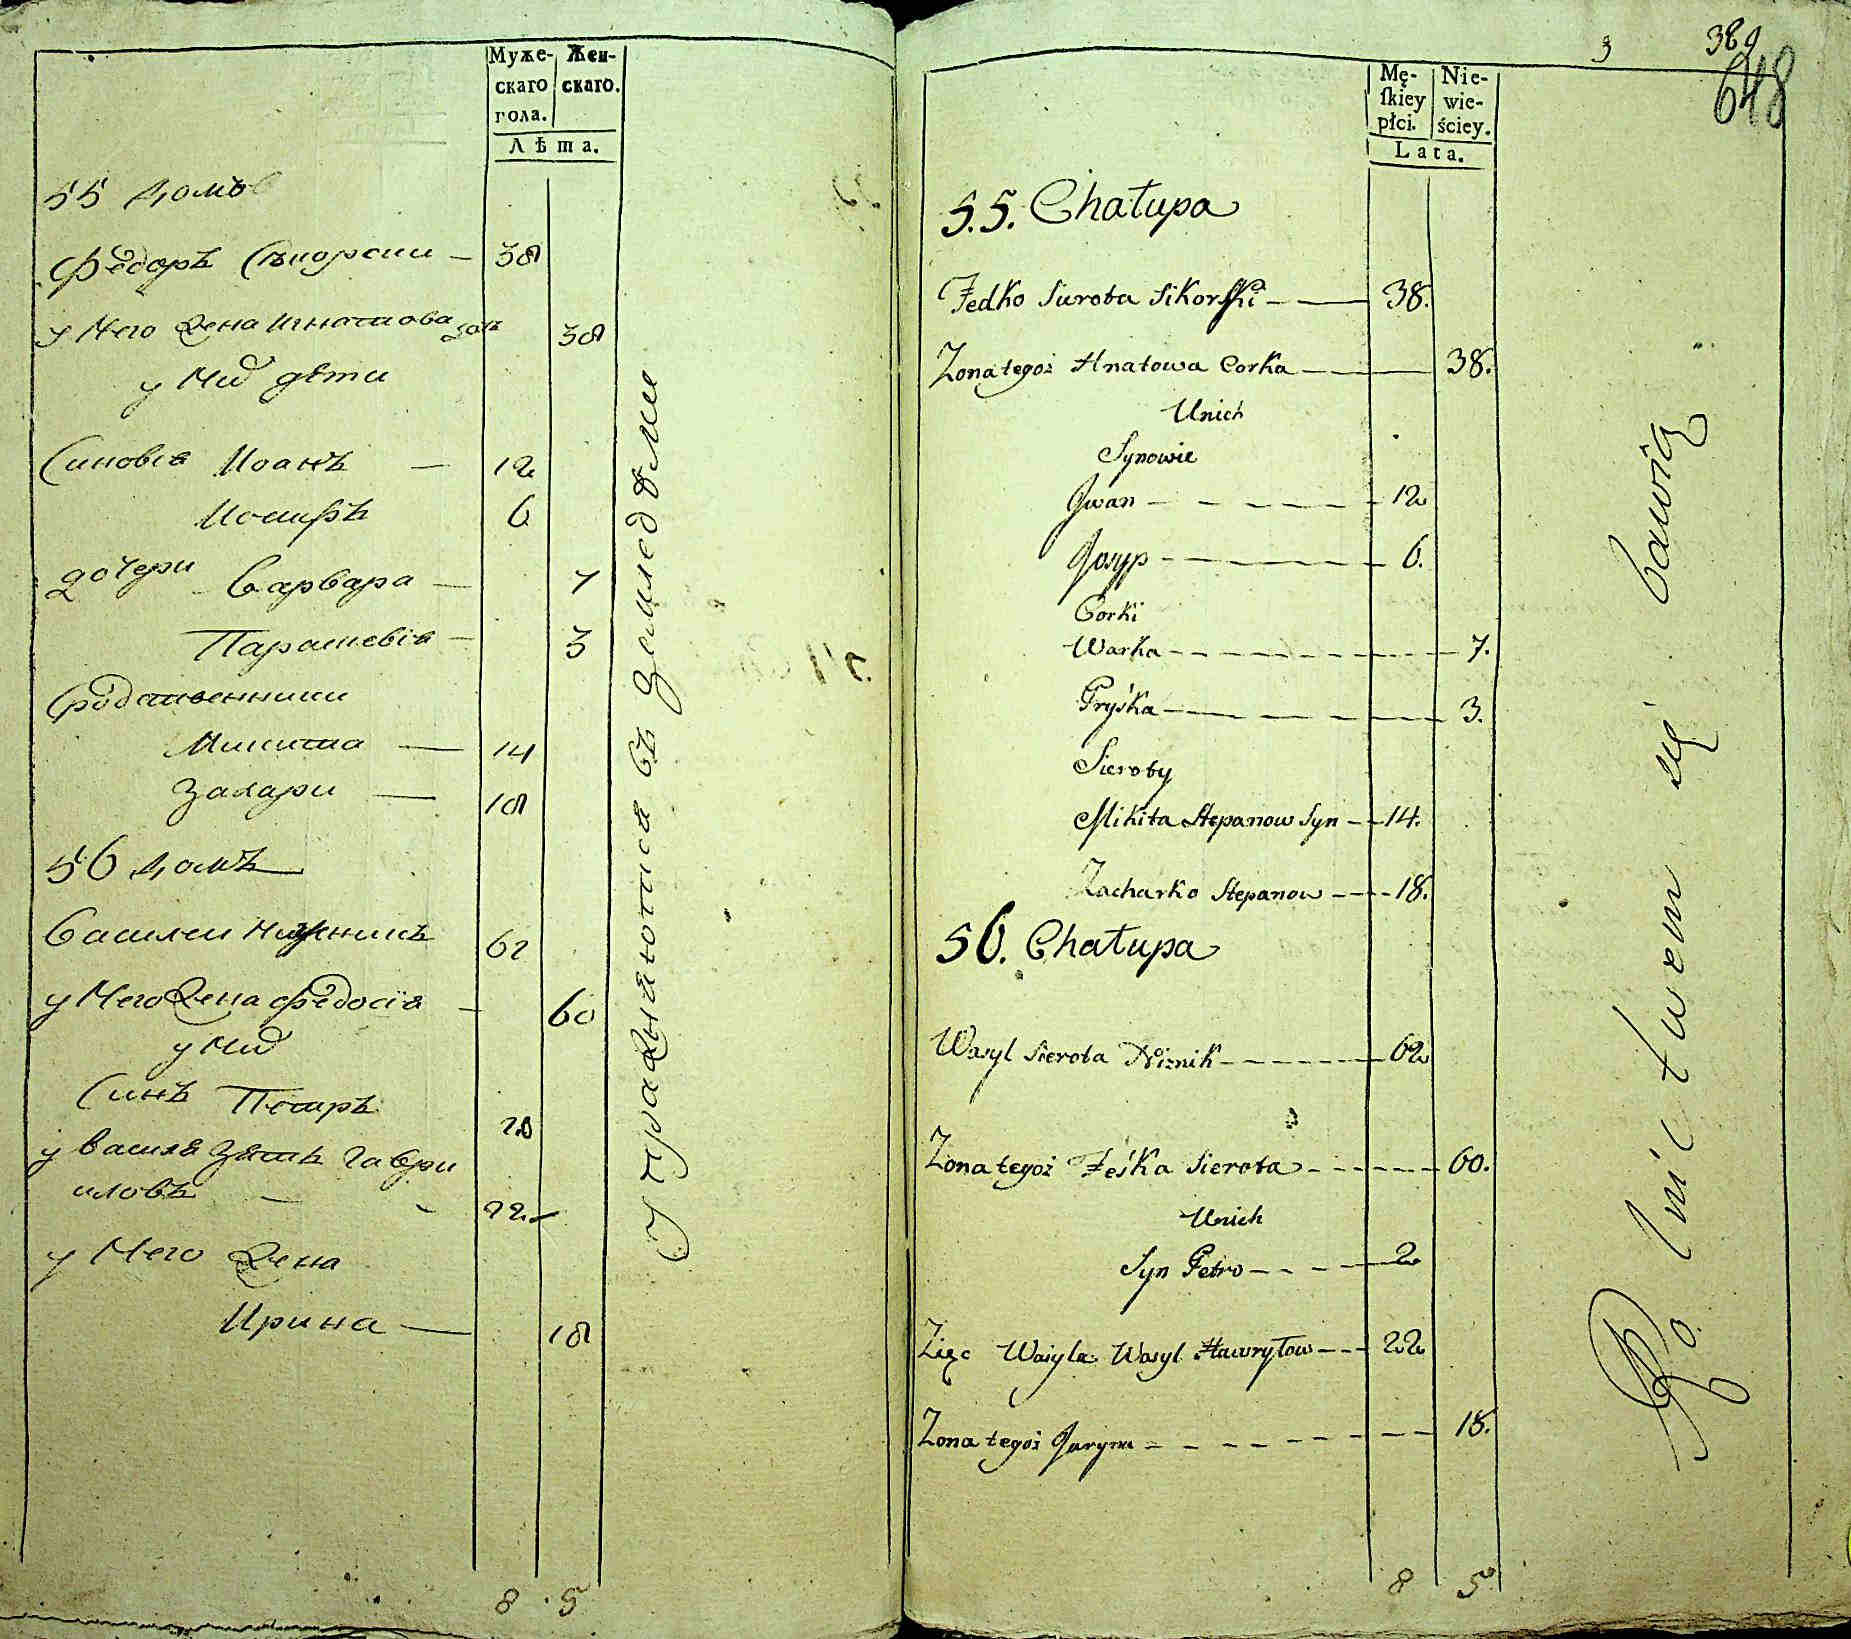 Муже-
скаго
пола.
Жен-
скаго.
Лѣта.
55 домъ
Федоръ Сикорски — 38
у Него жена Игнатова дочь 38
у Них дѣти
Синовя Иоанъ — 12
Иосифъ 6
дочери Варвара — 7
Парасковія — 3
Сродственники
Микита — 14
Захари — 18
56 домъ
Василеи Нижникъ 62
у Него жена Федосія — 60
у Них
Синъ Петръ 20
у Василя Зять Гаври
иловъ — 22
у Него жена
Ирина — 18
Упражняютса въ Земледѣлие
8 5
3
389
648
Mę-
ſkiey
płci.
Nie-
wie-
ściey.
Lata.
55. Chałupa
Fedko Surota Sikorſki — 38.
Zona tegoż Hnatowa Corka — 38.
Unich
Synowie
Jwan — 12
Josyp — 6.
Corki
Warka — 7.
Pryśka — 3.
Sieroty
Mikita Stepanow Syn — 14.
Zacharko Stepanow — 18.
56. Chałupa
Wasyl Sierota Niznik — 62
Zona tegoż Feśka Sierota — 60.
Unich
Syn Petro — 2
Zięc Wasyla Wasyl Hawryłow — 22
Zona tegoż Jaryna — 18.
Rolnictwem się bawią
8 5